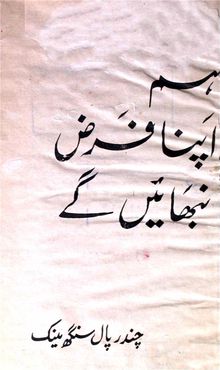 ہم
اپنا فرض
نبھائیں گے
چندر پال سنگھ مینک